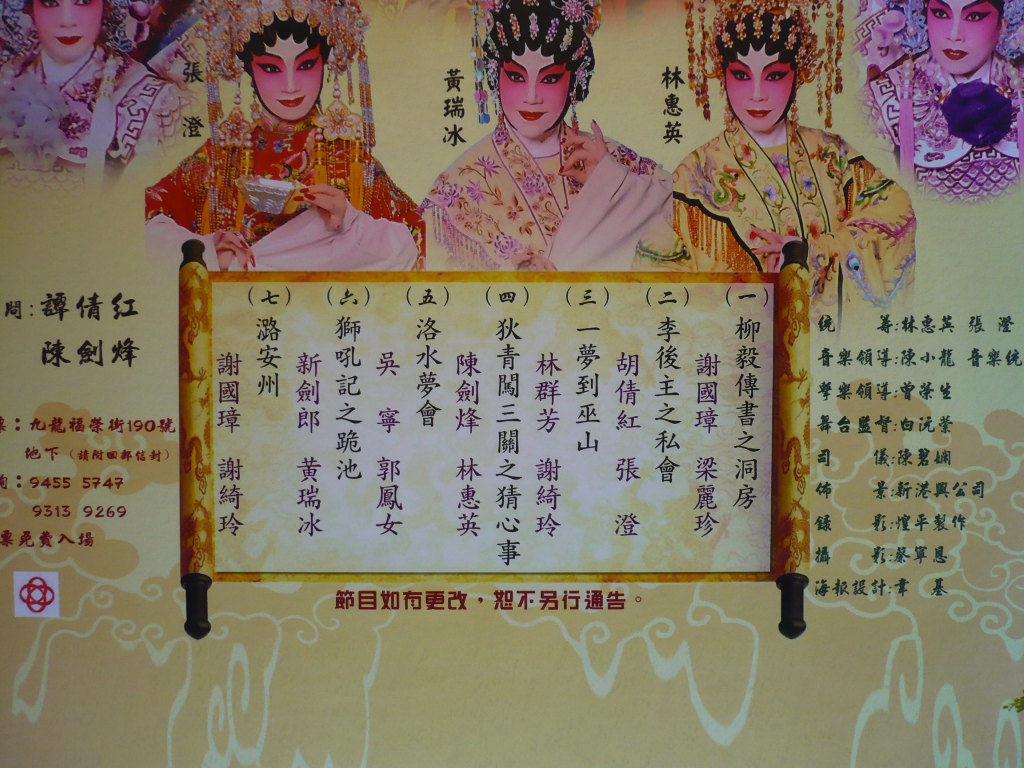 張澄
黃瑞冰
林惠英
問:譚倩紅
陳劍烽
：九龍福榮街190號
地下（請附回郵信封）
：9455 5747
9313 9269
票免費入場
（一）柳毅傳書之洞房
謝國璋 梁麗珍
（二）李後主之私會
胡倩紅 張 澄
（三）一夢到巫山
林群芳 謝綺玲
（四）狄青闖三關之猜心事
陳劍烽 林惠英
（五）洛水夢會
吳 寧 郭鳳女
（六）獅吼記之跪池
新劍郎 黃瑞冰
（七）潞安州
謝國璋 謝綺玲
節目如有更改，恕不另行通告。
統 籌:林惠英 張 澄
音樂領導:陳小龍 音樂統
擊樂領導:曾榮生
舞台監督:白沅瑩
司 儀:陳碧嫻
佈 景:新港興公司
錄 影:煌平製作
攝 影:蔡寧恩
海報設計:韋 基